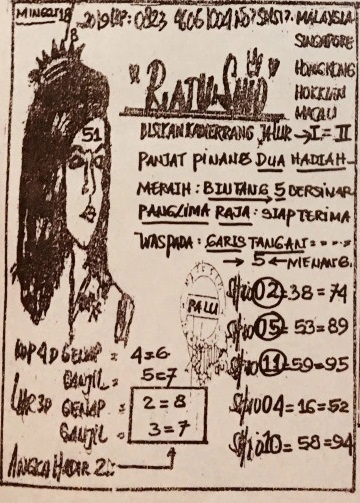 MINGGU 18
2019 HP: 0823 4606 1004 NO? SMS 17.
MALAYSIA
SINGAPORE
HONGKONG
HOKKIEN
MACAU
8
51
"RATU SHIO"
BISIKAN JALUR → I = II
PANJAT PINANG DUA HADIAH
MERAIH : BINTANG 5 BERSINAR
PANGLIMA RAJA : SIAP TERIMA
WASPADA : GARIS TANGAN = = = =
→ 5 ← MENANG.
PALU
SHIO 02 = 38 = 74
SHIO 05 = 53 = 89
SHIO 11 = 59 = 95
SHIO 04 = 16 = 52
SHIO 10 = 58 = 94
KOP 4D GENAP = 4=6
GANJIL = 5=7
GENAP = 2 = 8
GANJIL = 3 = 7
ANGKA HADIR 2 =
4